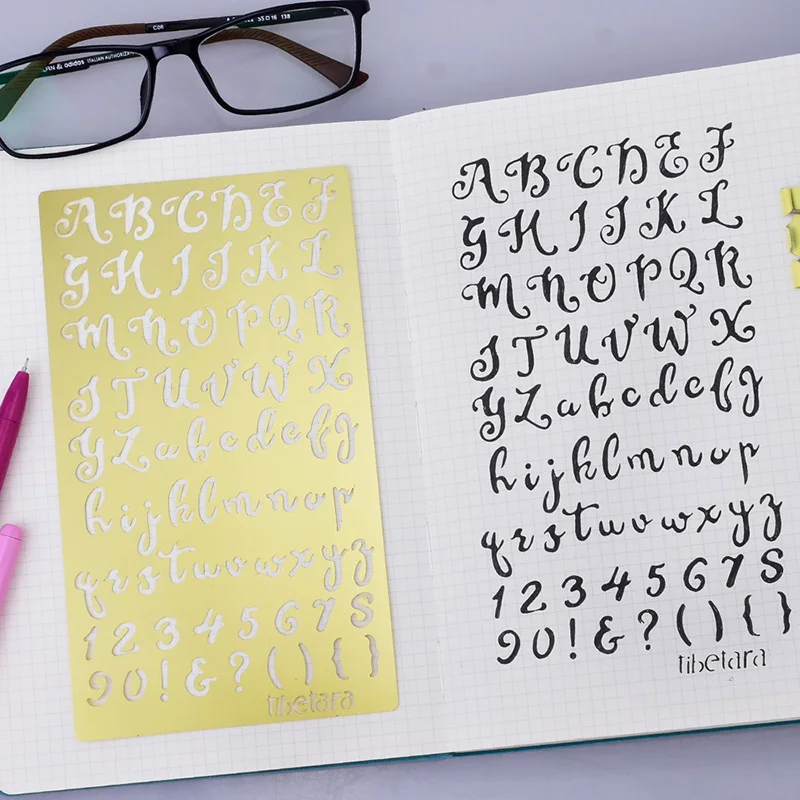 ITALIAN AUTHORIZA
& adidas
55□16 138
A B C D E F
G H I J K L
M N O P Q R
S T U V W X
Y Z a b c d e f g
h i j k l m n o p
q r s t u v w x y z
1 2 3 4 5 6 7 8
9 0 ! & ? ( ) { }
tibetara
A B C D E F
G H I J K L
M N O P Q R
S T U V W X
Y Z a b c d e f g
h i j k l m n o p
q r s t u v w x y z
1 2 3 4 5 6 7 8
9 0 ! & ? ( ) { }
tibetara